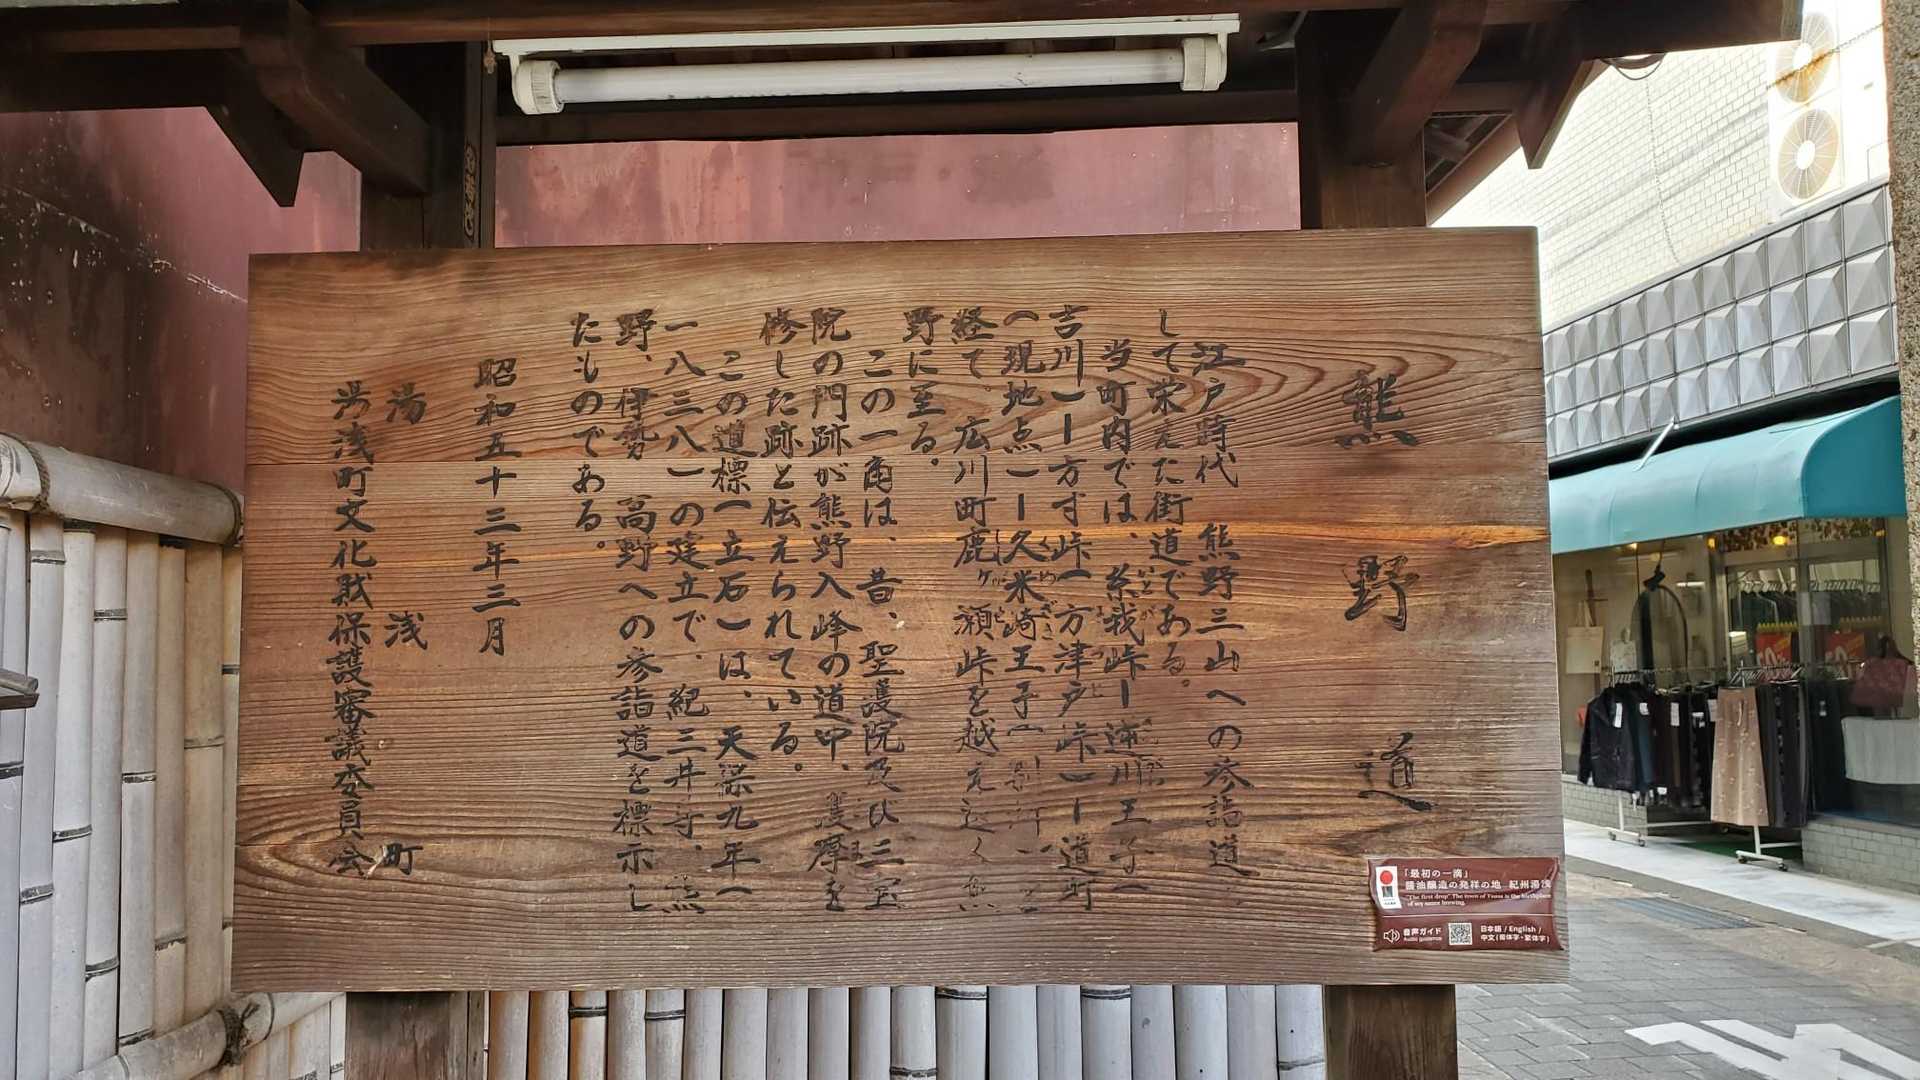 熊野道
江戸時代　熊野三山への参詣道と
して栄えた街道である。
当町内では、糸我峠ー逆川王子（
吉川）ー方寸峠（方津戸峠）ー道町
（現地点）ー久米崎王子（別所）を
経て。広川町鹿ヶ瀬峠を越え遠く熊
野に至る。
この一角は、昔、聖護院及び三宝
院の門跡が熊野入峰の道中、護摩を
修した跡と伝えられている。
この道標（立石）は、天保九年（
一八三八）の建立で、紀三井寺、熊
野、伊勢　高野への参詣道を標示し
たものである。
昭和五十三年三月
湯浅町
湯浅町文化財保護審議委員会
いとが
とつ
くめざき
ししがせ
ごま
「最初の一滴」
醤油醸造の発祥の地　紀州湯浅
"The first drop" The town of Yuasa is the birthplace
of soy sauce brewing.
音声ガイド
Audio guidance
日本語 / English /
中文(簡体字・繁体字)